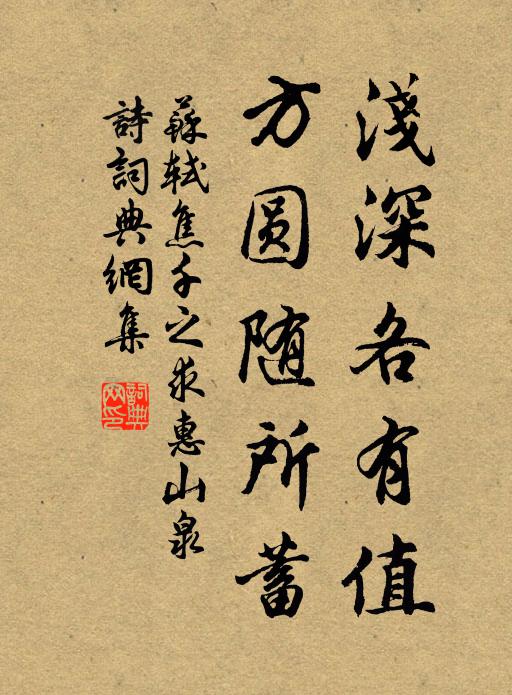 淺深各有值
方圓随所蓄
蘇軾焦千之求惠山泉
詩詞典網集
詞典網印